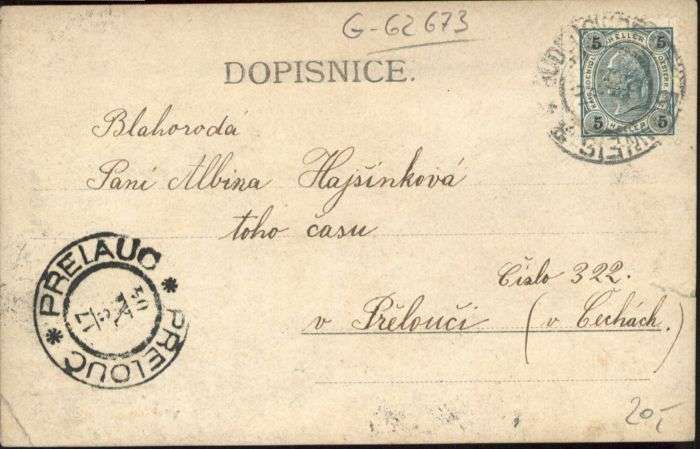 G-62673
DOPISNICE.
5 HELLER 5
5 HELLER 5
Blahorodá
Paní Albina Hajšinková
toho času
Číslo 322.
v Přelouči (v Čechách.)
PŘELAUC * PŘELOUČ *
17
20,-